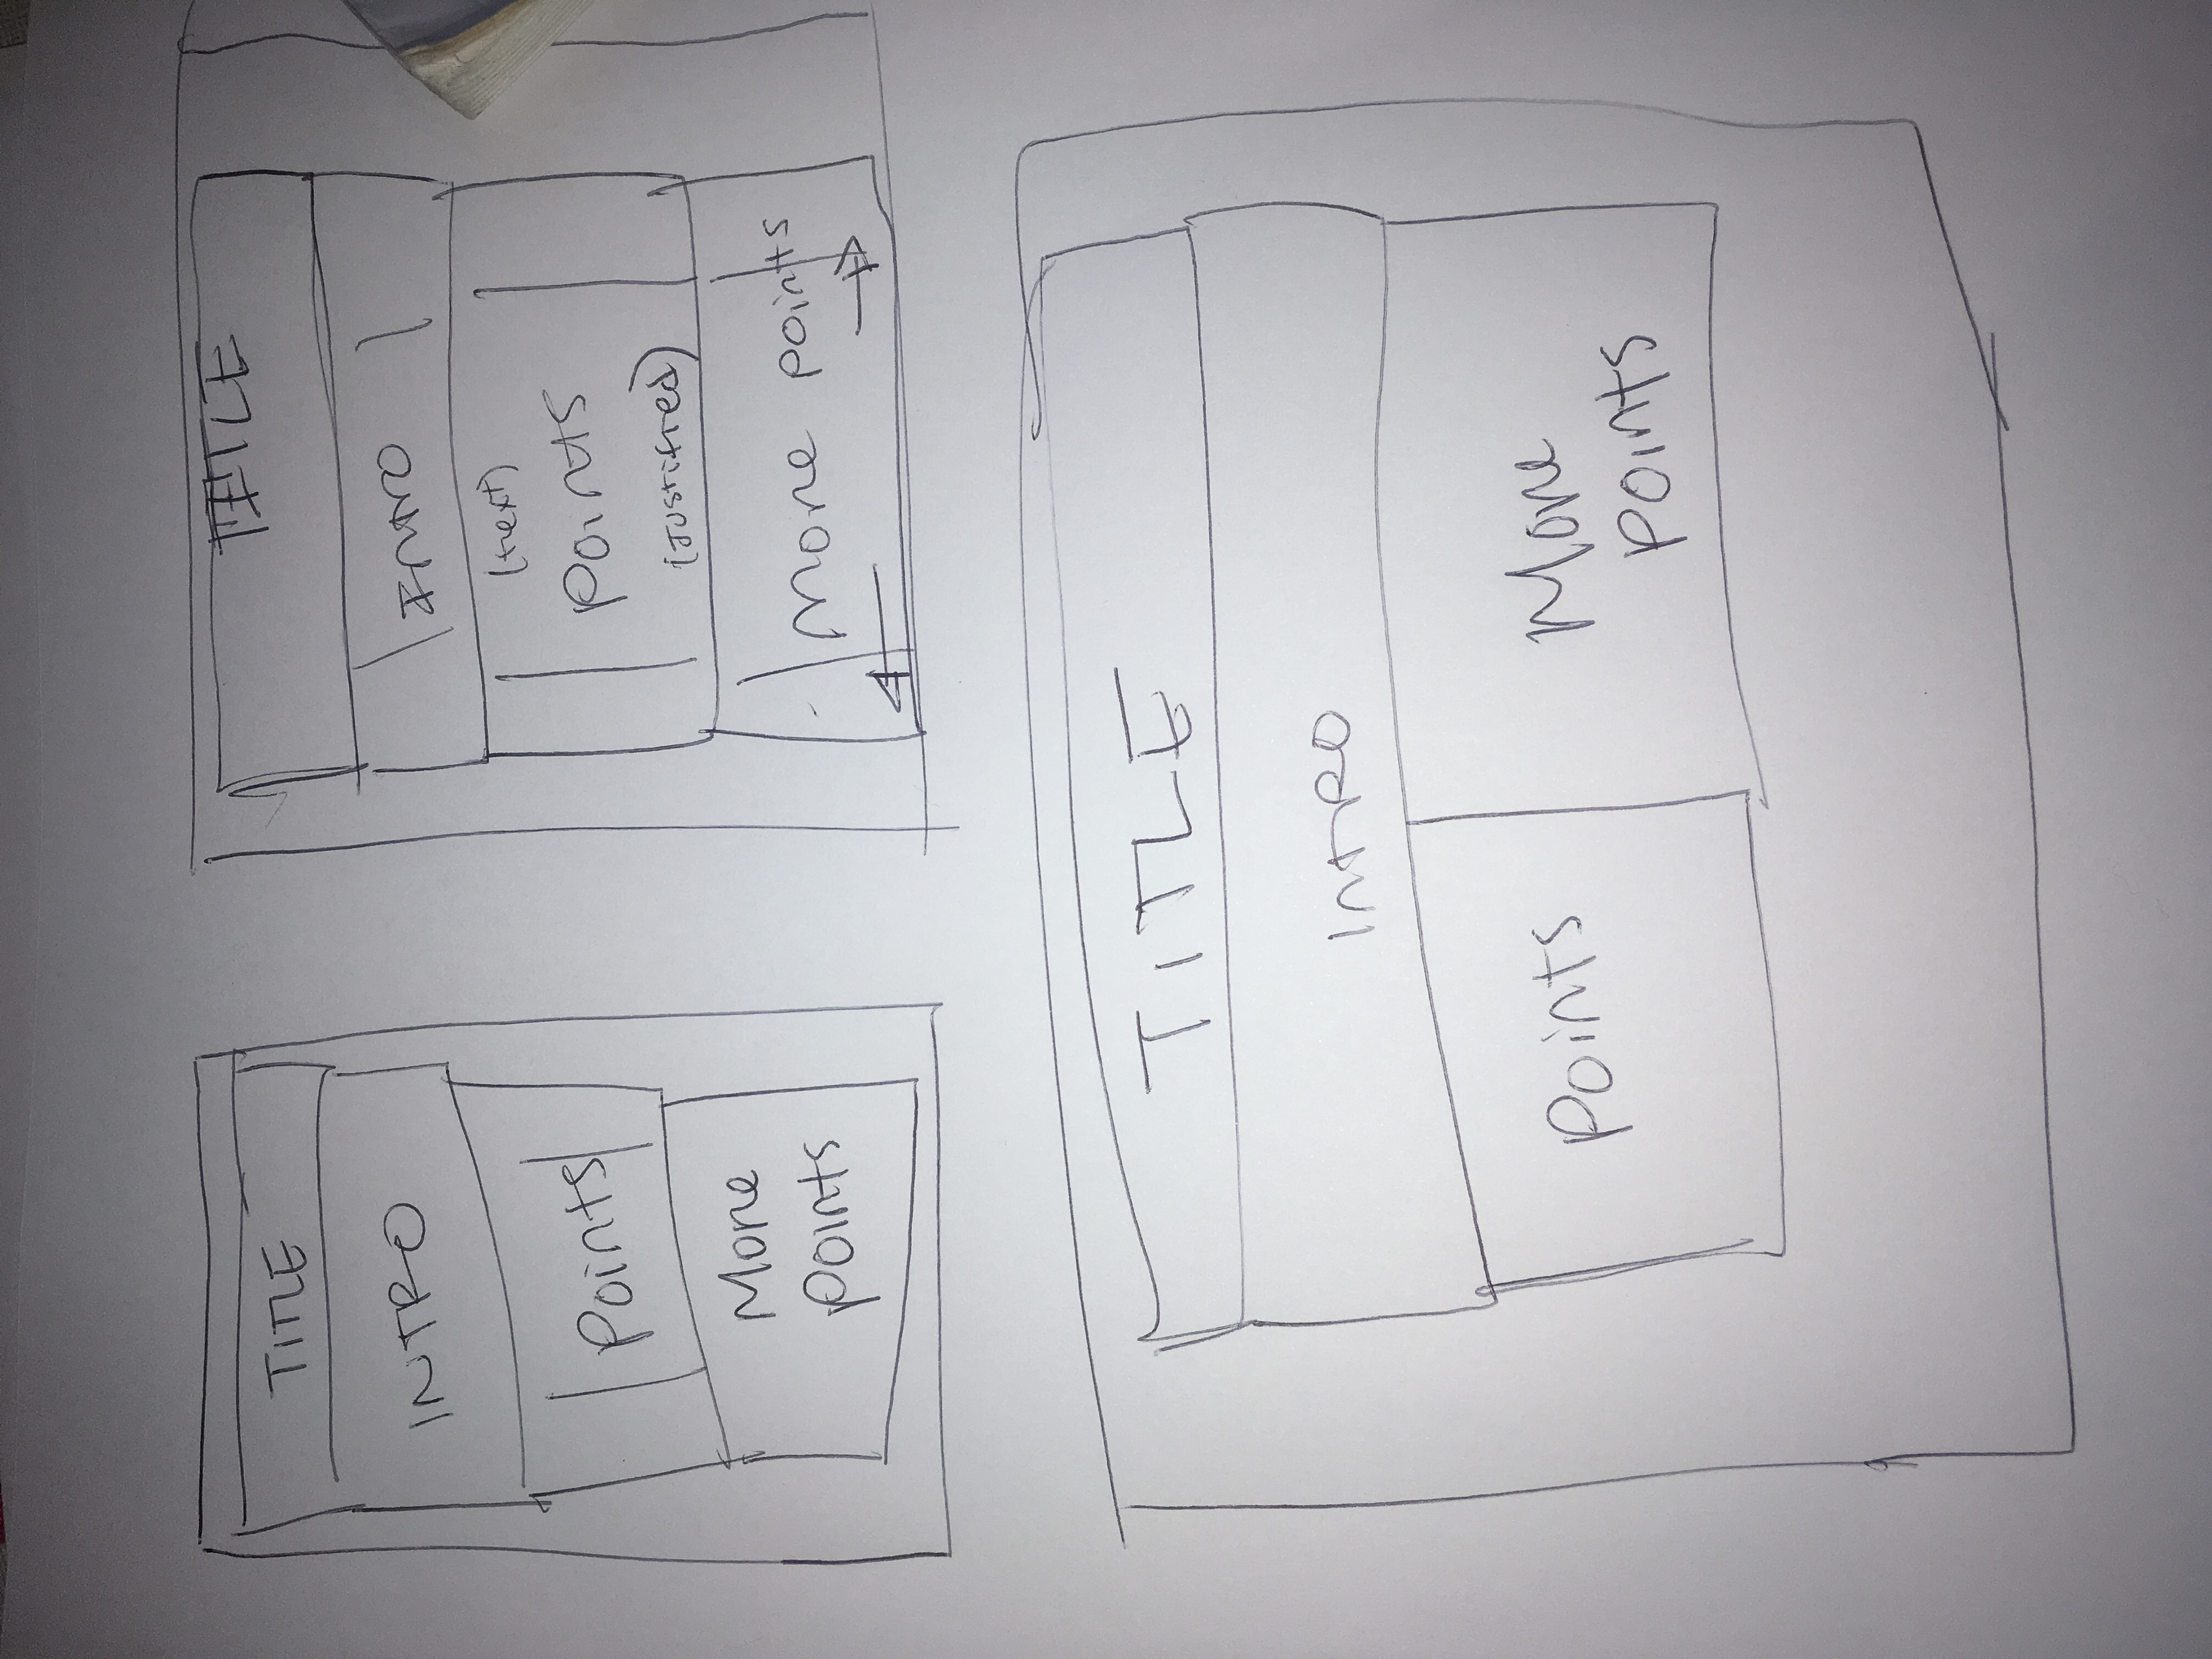 TITLE
INTRO
Points
More
points
TITLE
Intro
(text)
Points
(Justified)
More points
TITLE
INTRO
Points
More
points